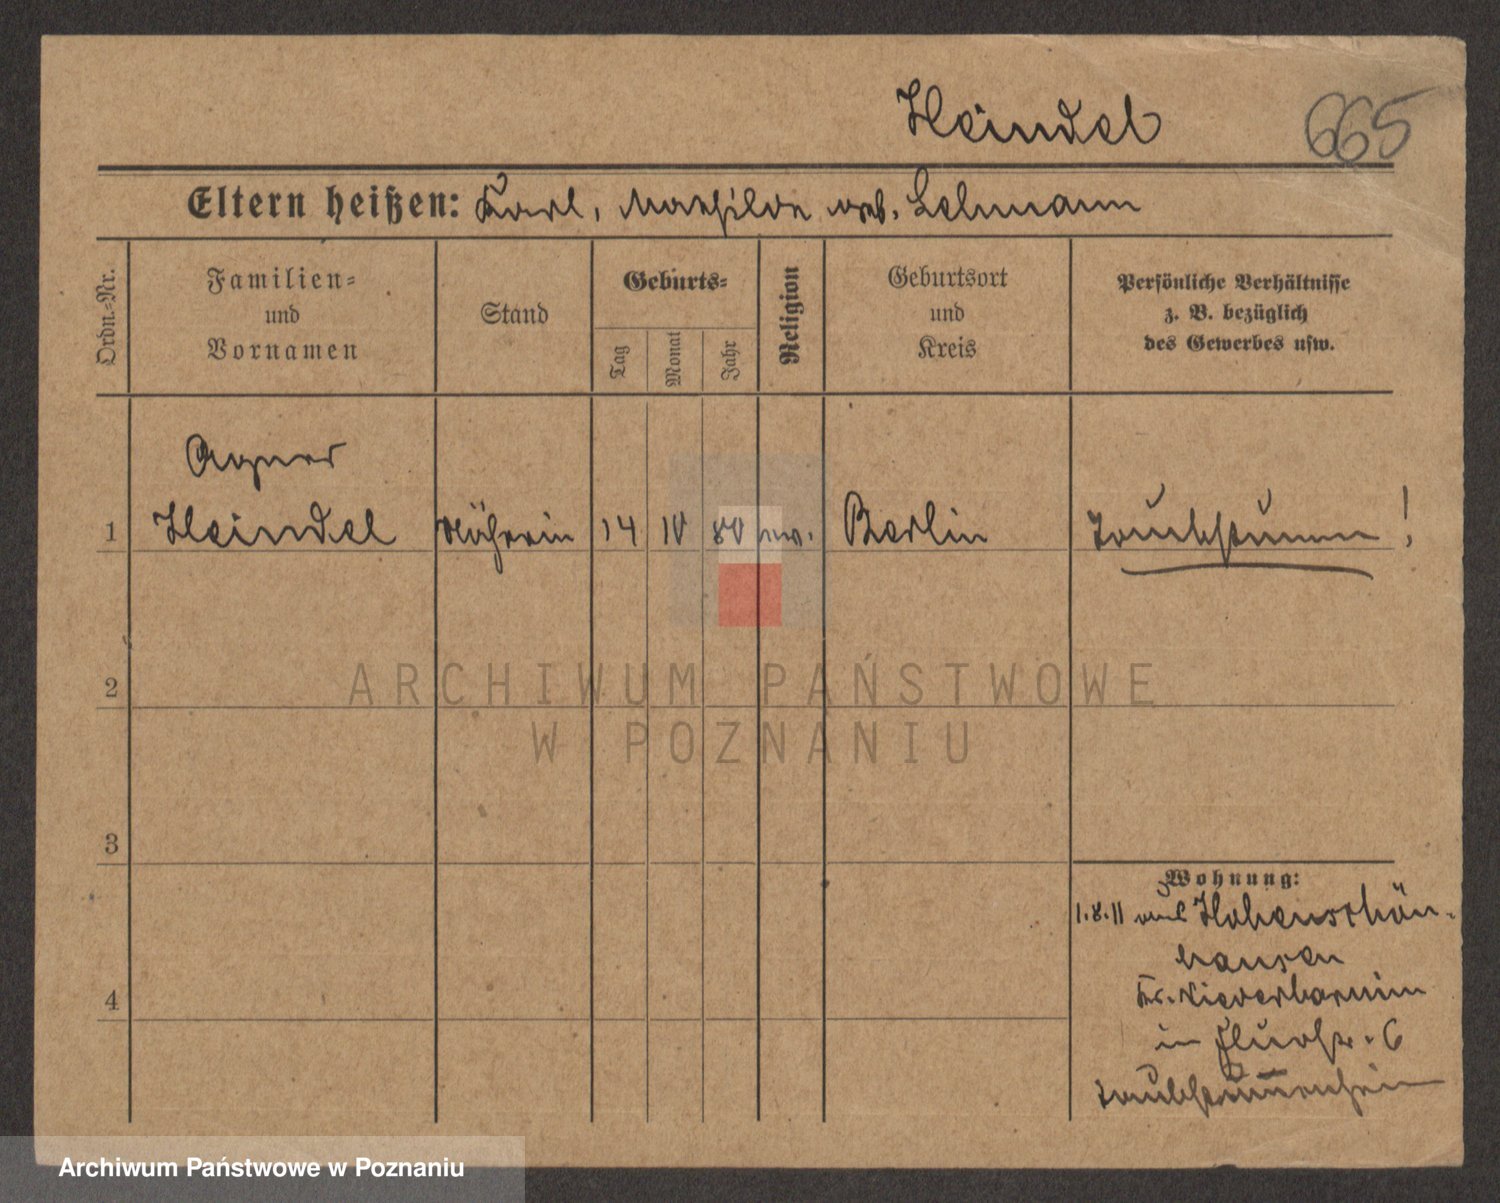 Heindel
665
Eltern heißen: Karl, Mathilde geb. Lehmann
Ordn.-Nr.
Familien- und Vornamen
Stand
Geburts-
Tag
Monat
Jahr
Religion
Geburtsort und Kreis
Persönliche Verhältnisse z. B. bezüglich des Gewerbes usw.
Agnes
1 Heindel Näherin 14 10 80 ev. Berlin Taubstumm!
2
3
4
Wohnung:
1.8.11 aus Hohenschön-
hausen
Kr. Niederbarnim
in Flurstr. 6
ARCHIWUM PAŃSTWOWE
W POZNANIU
Archiwum Państwowe w Poznaniu